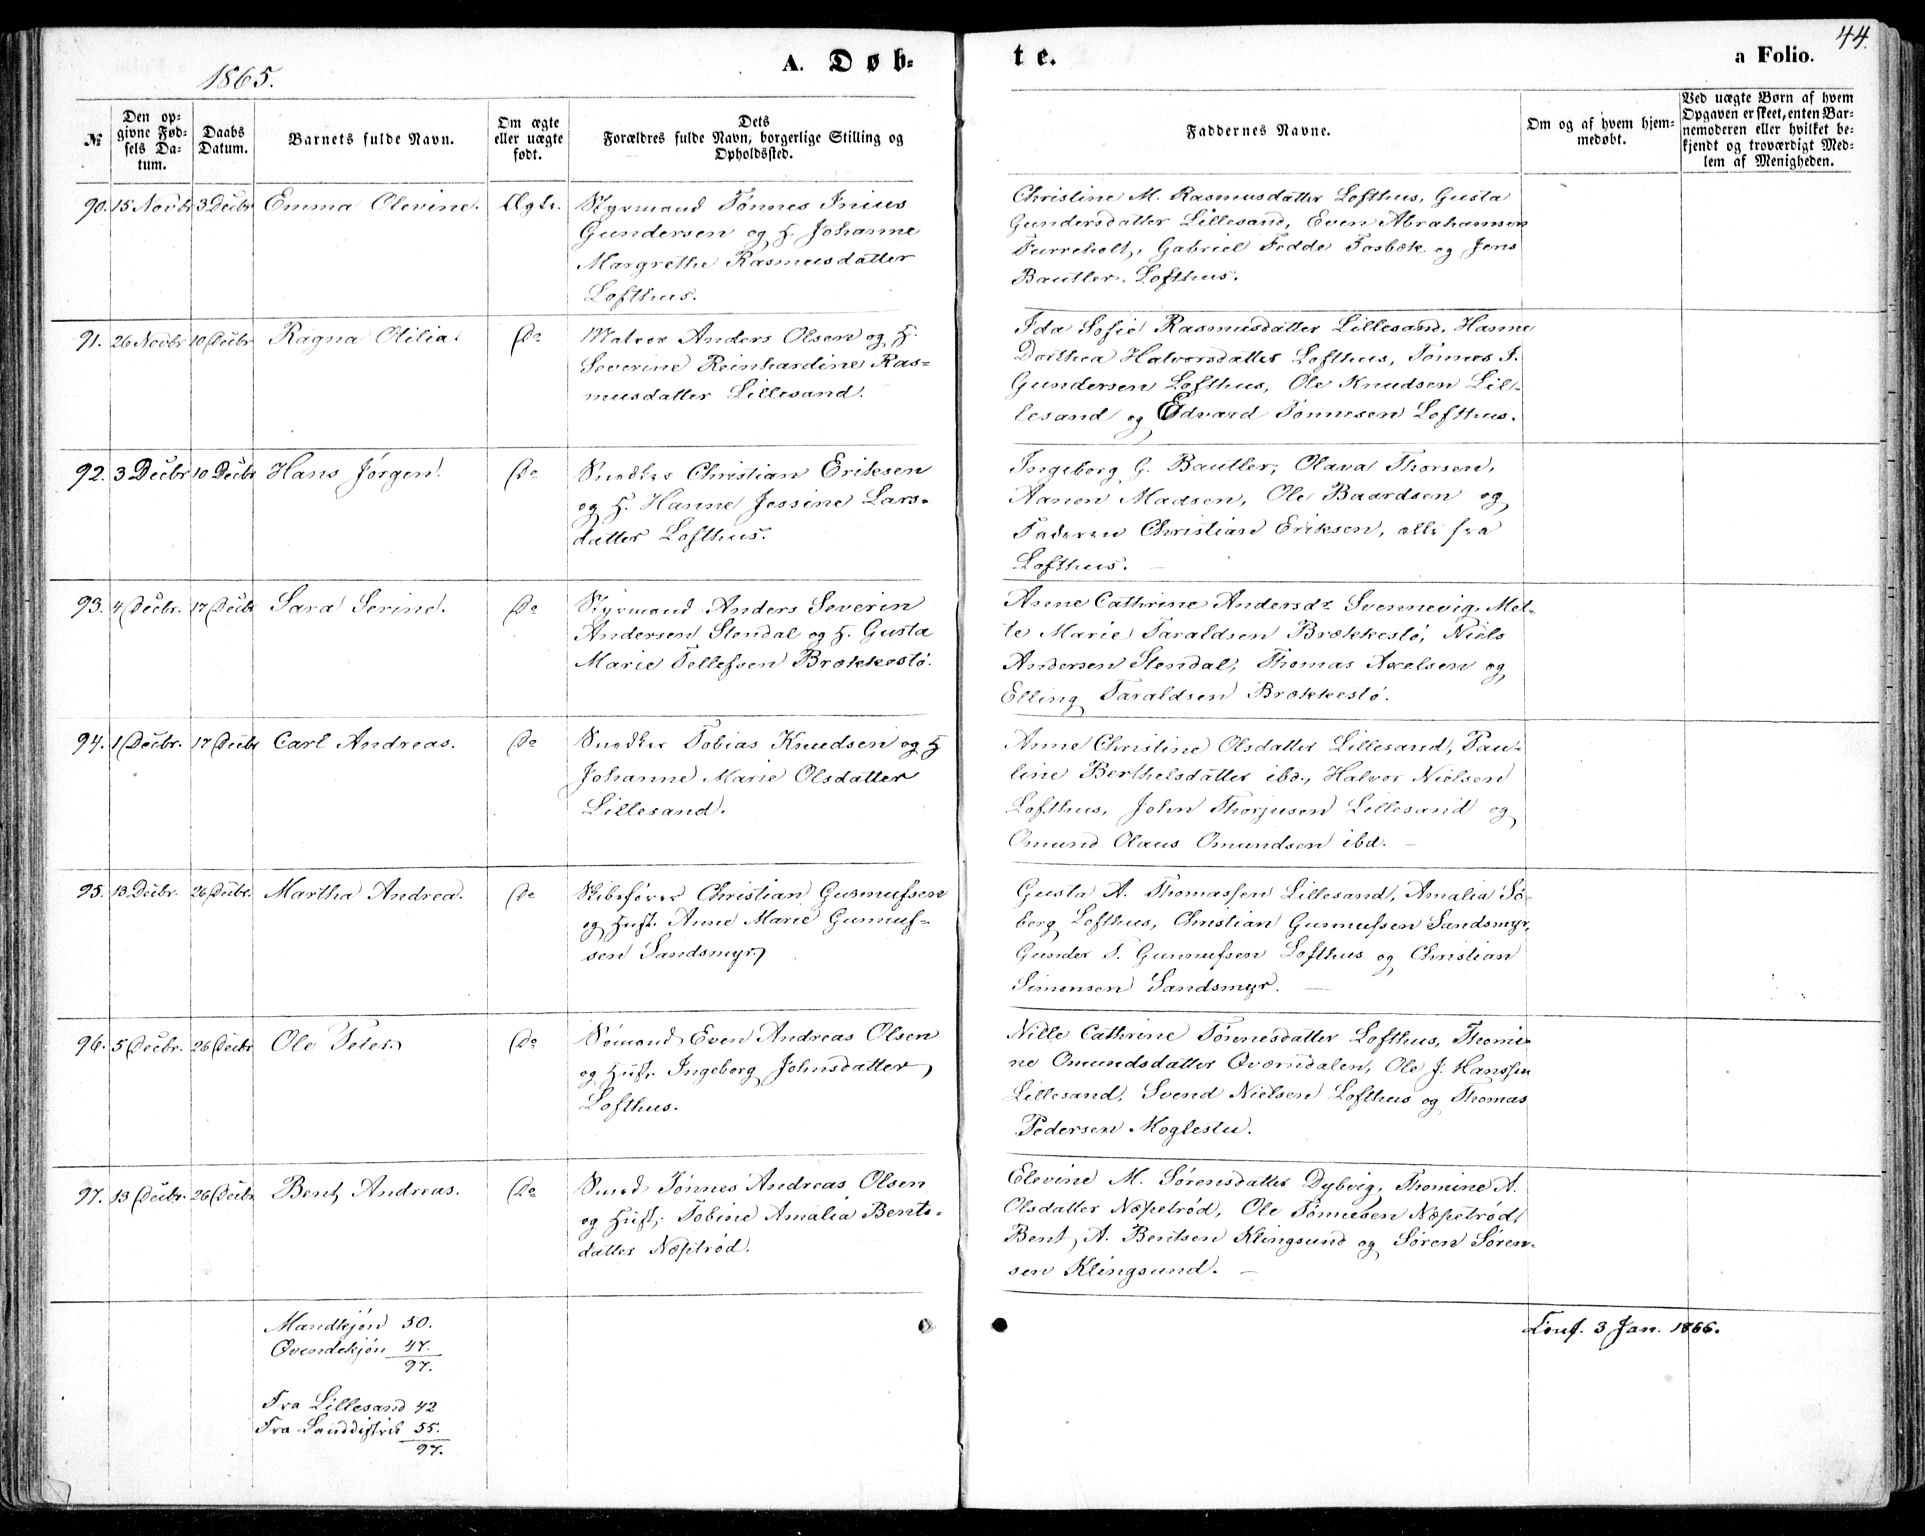 44.
1865.
A. Døb-
te.
a Folio.
№
Den op-
givne Fød-
sels Da-
tum.
Daabs
Datum.
Barnets fulde Navn.
Om ægte
eller uægte
født.
Dets
Forældres fulde Navn, borgerlige Stilling og
Opholdssted.
Faddernes Navne.
Om og af hvem hjem-
medøbt.
Ved uægte Børn af hvem
Opgaven er skeet, enten Bar-
nemoderen eller hvilket be-
kjendt og troværdigt Med-
lem af Menigheden.
90. 15 Novbr 3 Decbr Emma Olevine. Ægte.
Styrmand Tönnes Inius
Gundersen og H. Johanne
Margrethe Rasmusdatter
Lofthus.
Christine M. Rasmusdatter Lofthus, Gusta
Gundersdatter Lillesand, Even Abrahamsen
Furreholt, Gabriel Fedde Fosbæk og Jens
Bautler. Lofthus.
91. 26 Novbr 10 Decbr Ragna Otilia. Do
Matros Anders Olsen og H.
Severine Reinhardine Ras-
musdatter Lillesand.
Ida Sofie Rasmusdatter Lillesand, Hanne
Dorthea Halvorsdatter Lofthus, Tönnes I.
Gundersen Lofthus, Ole Knudsen Lil-
lesand og Edvard Tönnesen Lofthus.
92. 3 Decbr 10 Decbr Hans Jørgen. Do
Snedker Christian Eriksen
og H. Hanne Jessine Lars-
datter Lofthus.
Ingeborg G. Bautler, Olava Thorsen,
Aanon Madsen, Ole Baardsen og
Faderen Christian Eriksen, alle fra
Lofthus.
93. 4 Decbr. 17 Decbr Sara Serine. Do
Styrmand Anders Severin
Andersen Stendal og H. Gusta
Marie Tellefsen Brækkestö.
Anne Cathrine Andersdr Svennevig, Met-
te Marie Taraldsen Brækkestö, Niels
Andersen Stendal, Thomas Axelsen og
Elling Taraldsen Brækkestö.
94. 1 Decbr. 17 Decbr Carl Andreas. Do
Snedker Tobias Knudsen og H
Johanne Marie Olsdatter
Lillesand.
Anne Christine Olsdatter Lillesand, Pau-
line Berthelsdatter ibd., Halvor Nielsen
Lofthus, John Thorjusen Lillesand og
Omund Olaus Omundsen ibd.
95. 13 Decbr. 26 Decbr. Martha Andrea. Do
Skibsfører Christian Gunnufsen
og Hust. Anne Marie Gunnuf-
sen Sandsmyr.
Gusta A. Thomassen Lillesand, Amalia Sø-
berg Lofthus, Christian Gunnufsen Sandsmyr,
Gunder T. Gunnufsen Lofthus og Christian
Simonsen Sandsmyr.
96. 5 Decbr. 26 Decbr Ole Peter. Do
Sømand Even Andreas Olsen
og Hust. Ingeborg Johnsdatter,
Lofthus.
Nille Cathrine Tönnesdatter Lofthus, Thomi-
ne Omundsdatter Qværndalen, Ole J. Hanssen
Lillesand, Svend Nielsen Lofthus og Thomas
Pedersen Moglestu.
97. 13 Decbr. 26 Decbr Bent Andreas. Do
Smed Tönnes Andreas Olsen
og Hust. Tobine Amalia Bents-
datter Næsetrød.
Elevine M. Sørensdatter Dybvig, Thomine A.
Olsdatter Næsetrød, Ole Tönnesen Næsetrød,
Bent A. Bentsen Klingsund og Søren Søren-
sen Klingsund.
Mandkjön 50.
Qvindekjön 47.
97.
Fra Lillesand 42
Fra Landdistrict 55.
97.
Conf. 3 Jan. 1866.